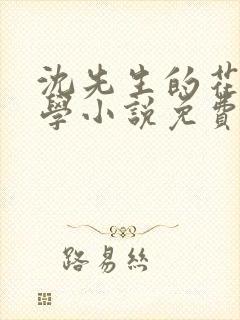 沈先生的花
學小說免費
路易絲